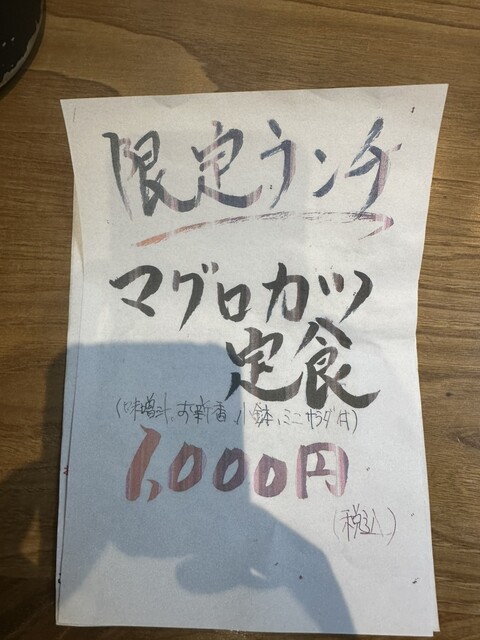 限定ランチ
マグロカツ
定食
(味噌汁、お新香、小鉢、ミニサラダ付)
1,000円
(税込)